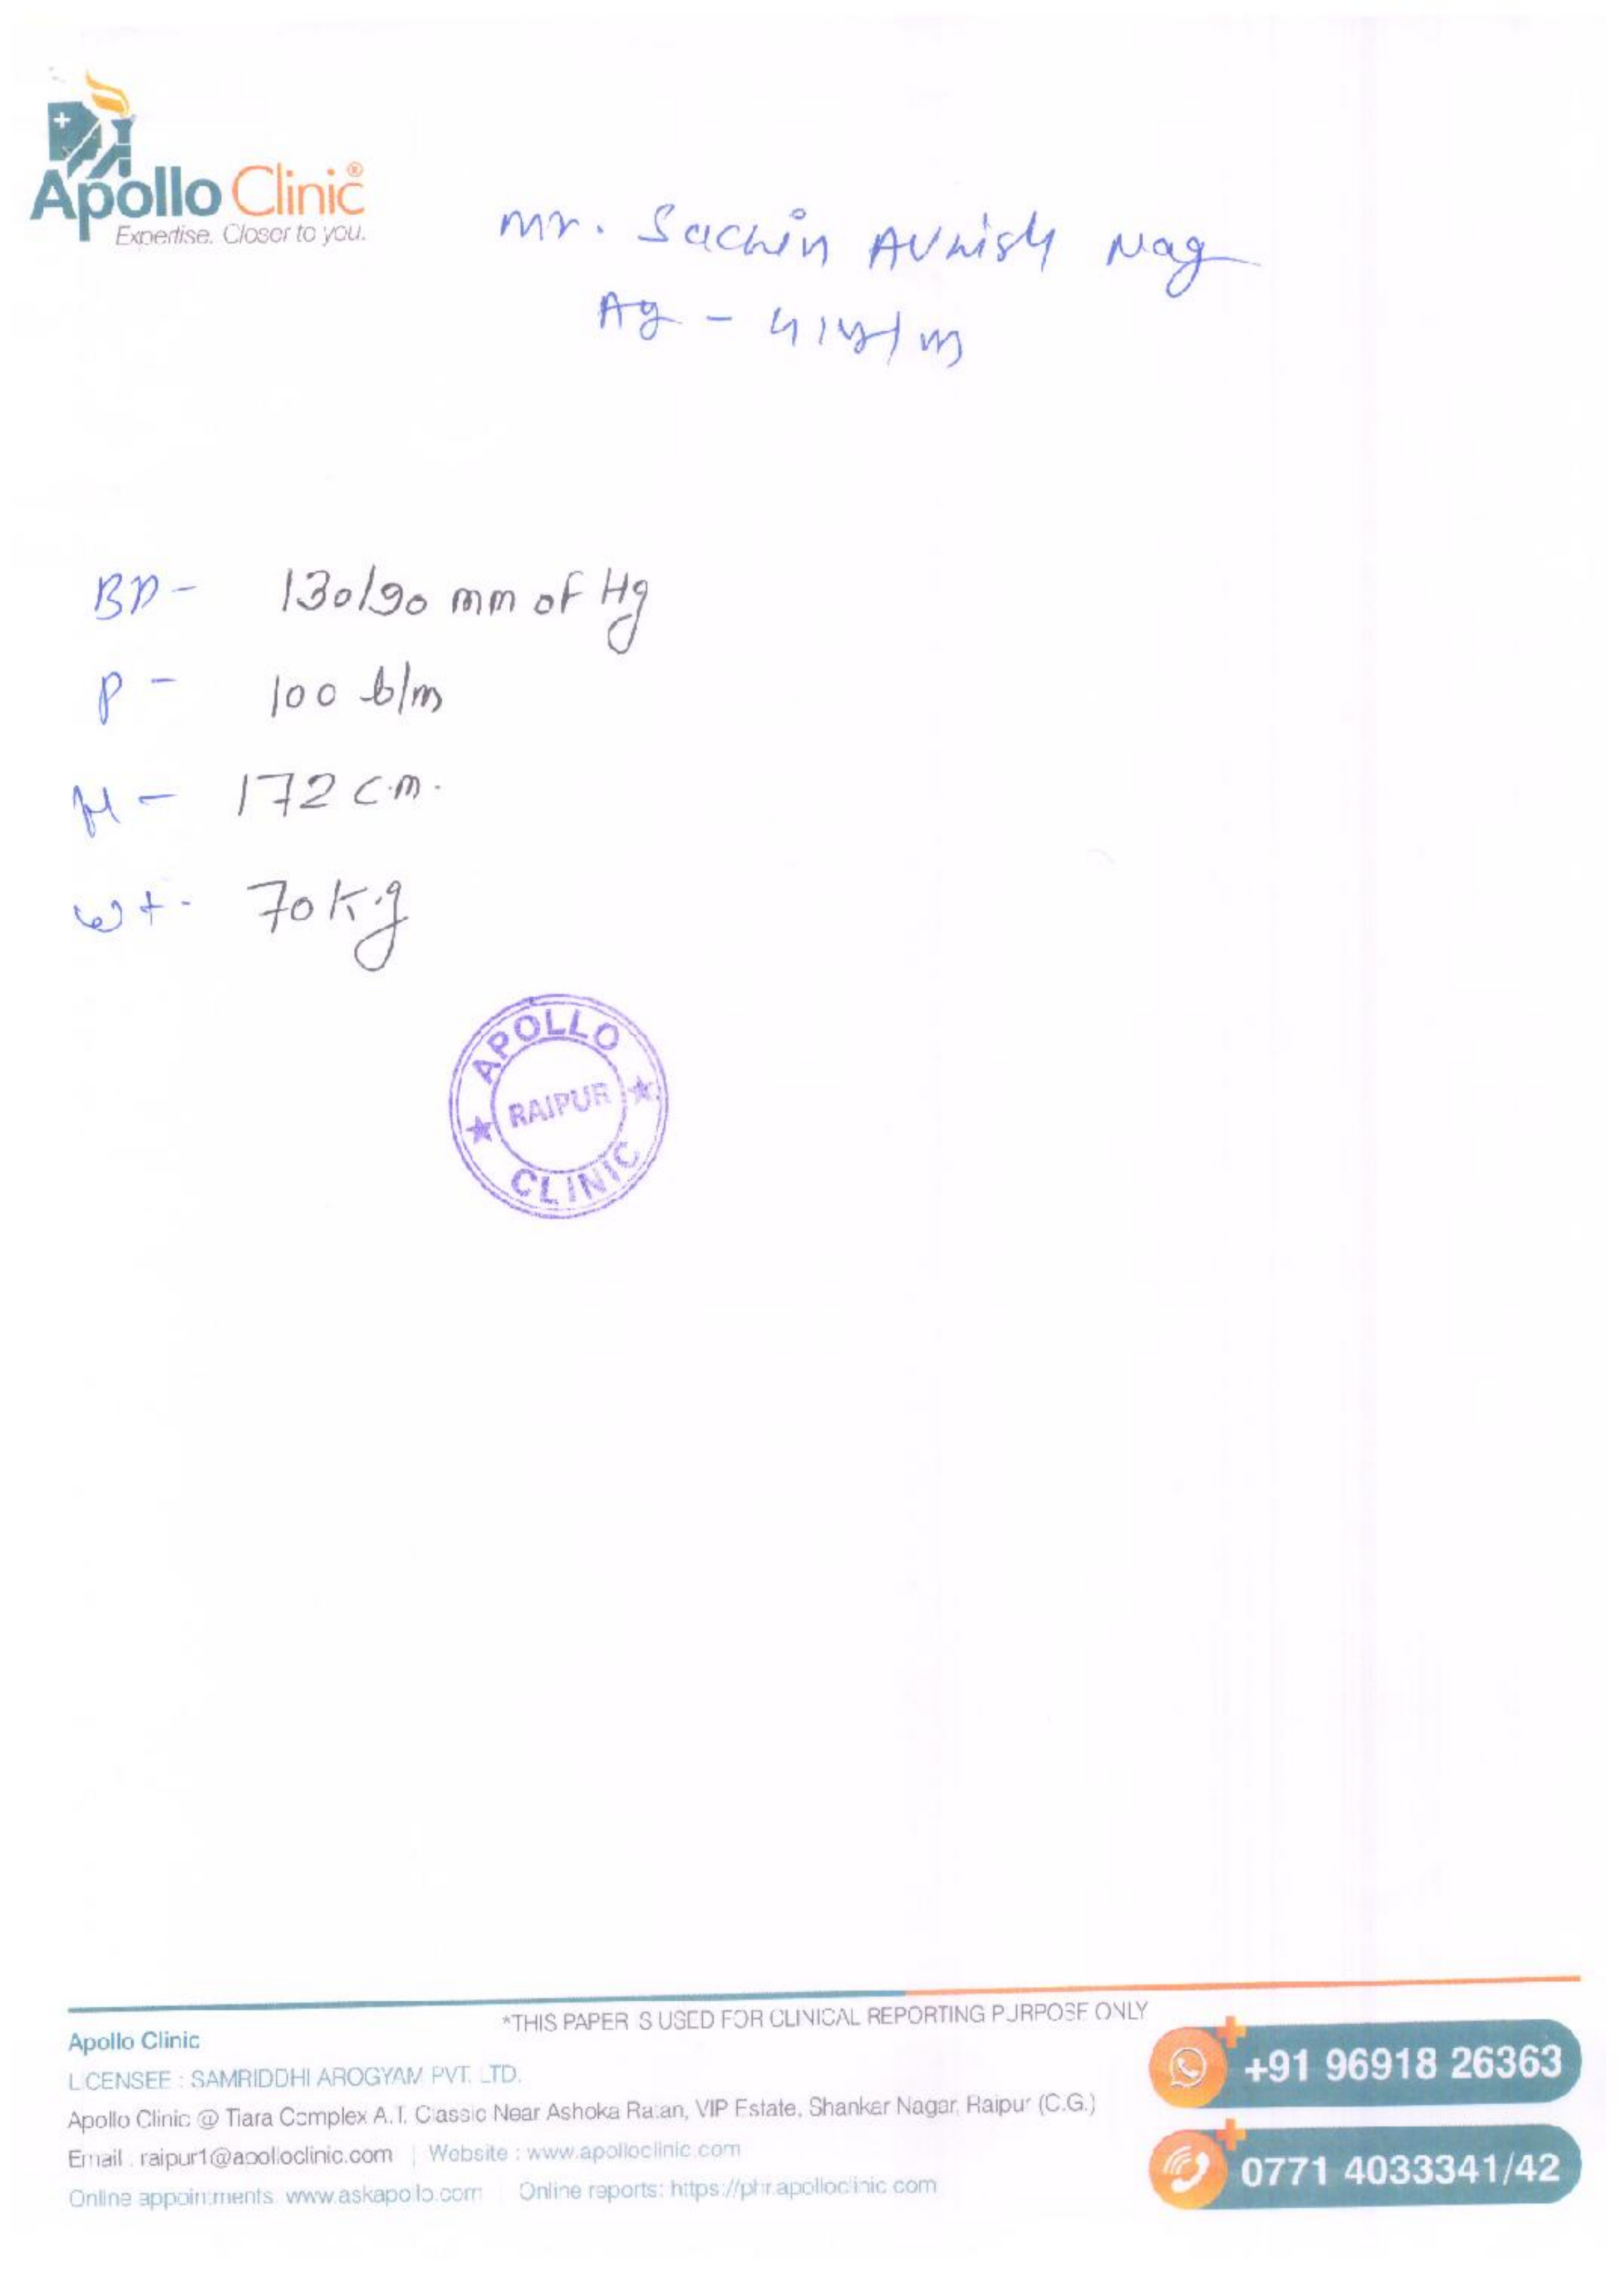 Apollo Clinic®
Expertise. Closer to you.
Mr. Sachin Avnish Nag
Ag - 41y/m
BP - 130/90 mm of Hg
P - 100 b/m
H - 172 c.m.
wt. 70 Kg
APOLLO
RAIPUR
CLINIC
*THIS PAPER IS USED FOR CLINICAL REPORTING PURPOSE ONLY
Apollo Clinic
LICENSEE : SAMRIDDHI AROGYAM PVT. LTD.
Apollo Clinic @ Tiara Complex A.T. Classic Near Ashoka Ratan, VIP Estate, Shankar Nagar, Raipur (C.G.)
Email : raipur1@apolloclinic.com | Website : www.apolloclinic.com
Online appointments: www.askapollo.com | Online reports: https://phr.apolloclinic.com
+91 96918 26363
0771 4033341/42